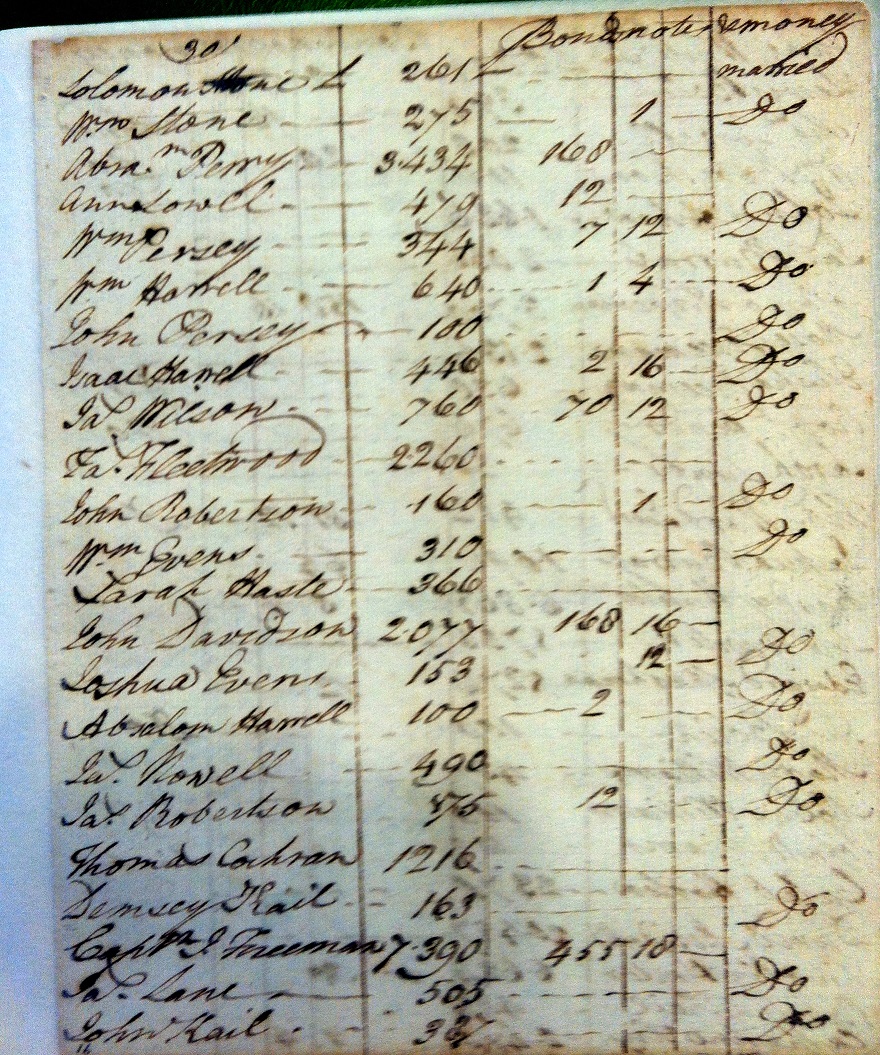 30
Bonds notes & money
Solomon Stone £ 261 married
Wm Stone 275 1 Do
Abram Perry 3.434 168
Ann Lowell 479 12
Wm Persey 344 7 12 Do
Wm Harrell 640 1 4 Do
John Persey 100 Do
Isaac Harrell 446 2 16 Do
Jas Wilson 760 70 12 Do
Jas Fleetwood 2260
John Robertson 160 1 Do
Wm Evens 310 Do
Sarah Haste 366
John Davidson 2.077 168 16
Joshua Evens 153 12 Do
Absalom Harrell 100 2 Do
Jas Nowell 490 Do
Jas Robertson 12 Do
Thomas Cochran 1216
Demsey Kail 163 Do
Captn J. Freeman 7.390 455 18
Jas Lane 505 Do
John Kail Do